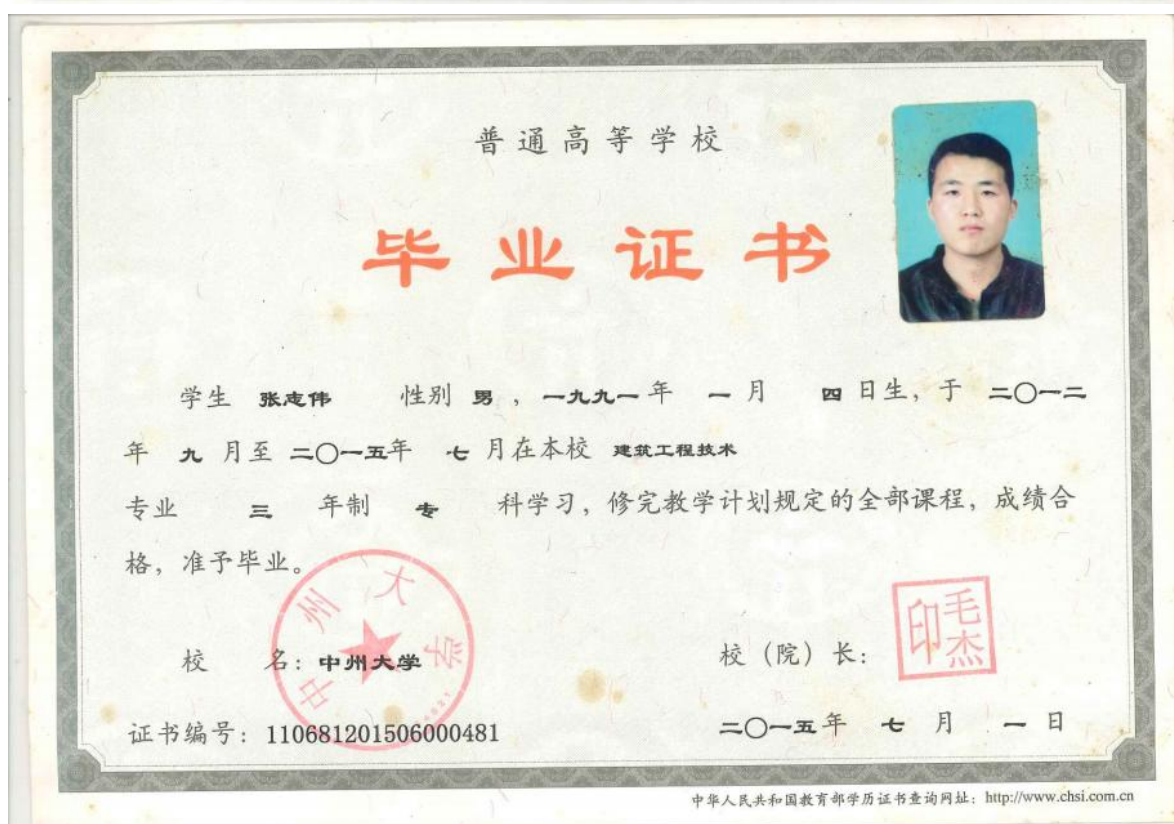 普通高等学校
毕业证书
学生 张志伟 性别 男 ，一九九一年 一月 四日生，于 二〇一二
年 九 月至 二〇一五年 七 月在本校 建筑工程技术
专业 三 年制 专 科学习，修完教学计划规定的全部课程，成绩合
格，准予毕业。
中州大学
校 名：中州大学
校（院）长：
毛杰印
证书编号：110681201506000481
二〇一五年 七 月 一 日
中华人民共和国教育部学历证书查询网址：http://www.chsi.com.cn